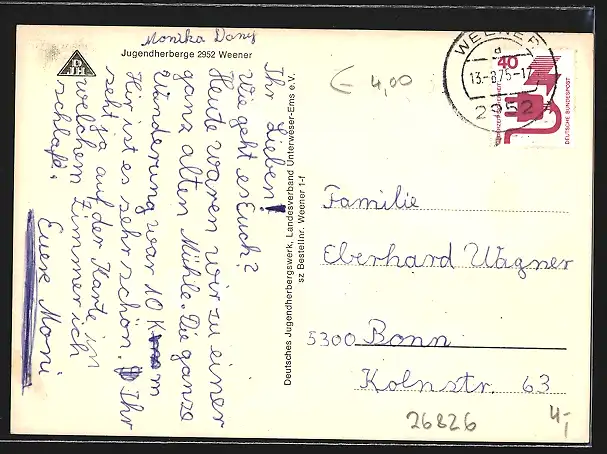 Monika Dany
DJH
Jugendherberge 2952 Weener
Ihr Lieben!
Wie geht es Euch?
Heute waren wir zu einer
ganz alten Mühle. Die ganze
Wanderung war 10 Km
Hier ist es sehr schön. Ihr
seht ja auf der Karte in
welchem Zimmer ich
schlafe.
Eure Moni
Deutsches Jugendherbergswerk, Landesverband Unterweser-Ems e.V.
sz Bestellnr. Weener 1-f
€ 4,00
WEENER
d
13.-8.75-17
2952
40
DEUTSCHE BUNDESPOST
Familie
Eberhard Wagner
5300 Bonn
Kolnstr. 63
26826
4,-